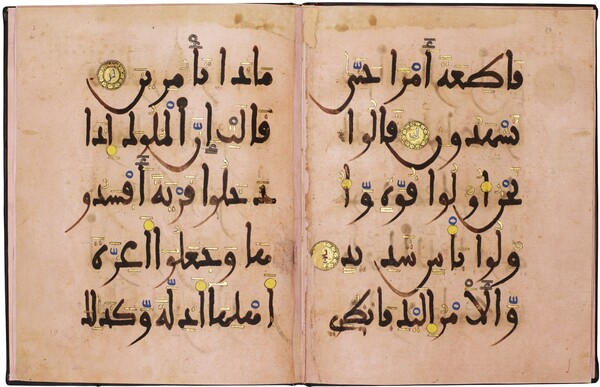 قاطعة أمرا حتى
تشهدون قالوا
نحن أولوا قوة وأ
ولوا بأس شديد
والأمر إليك فانظري
ماذا تأمرين
قالت إن الملوك إذا
دخلوا قرية أفسدو
ها وجعلوا أعزة
أهلها أذلة وكذلك